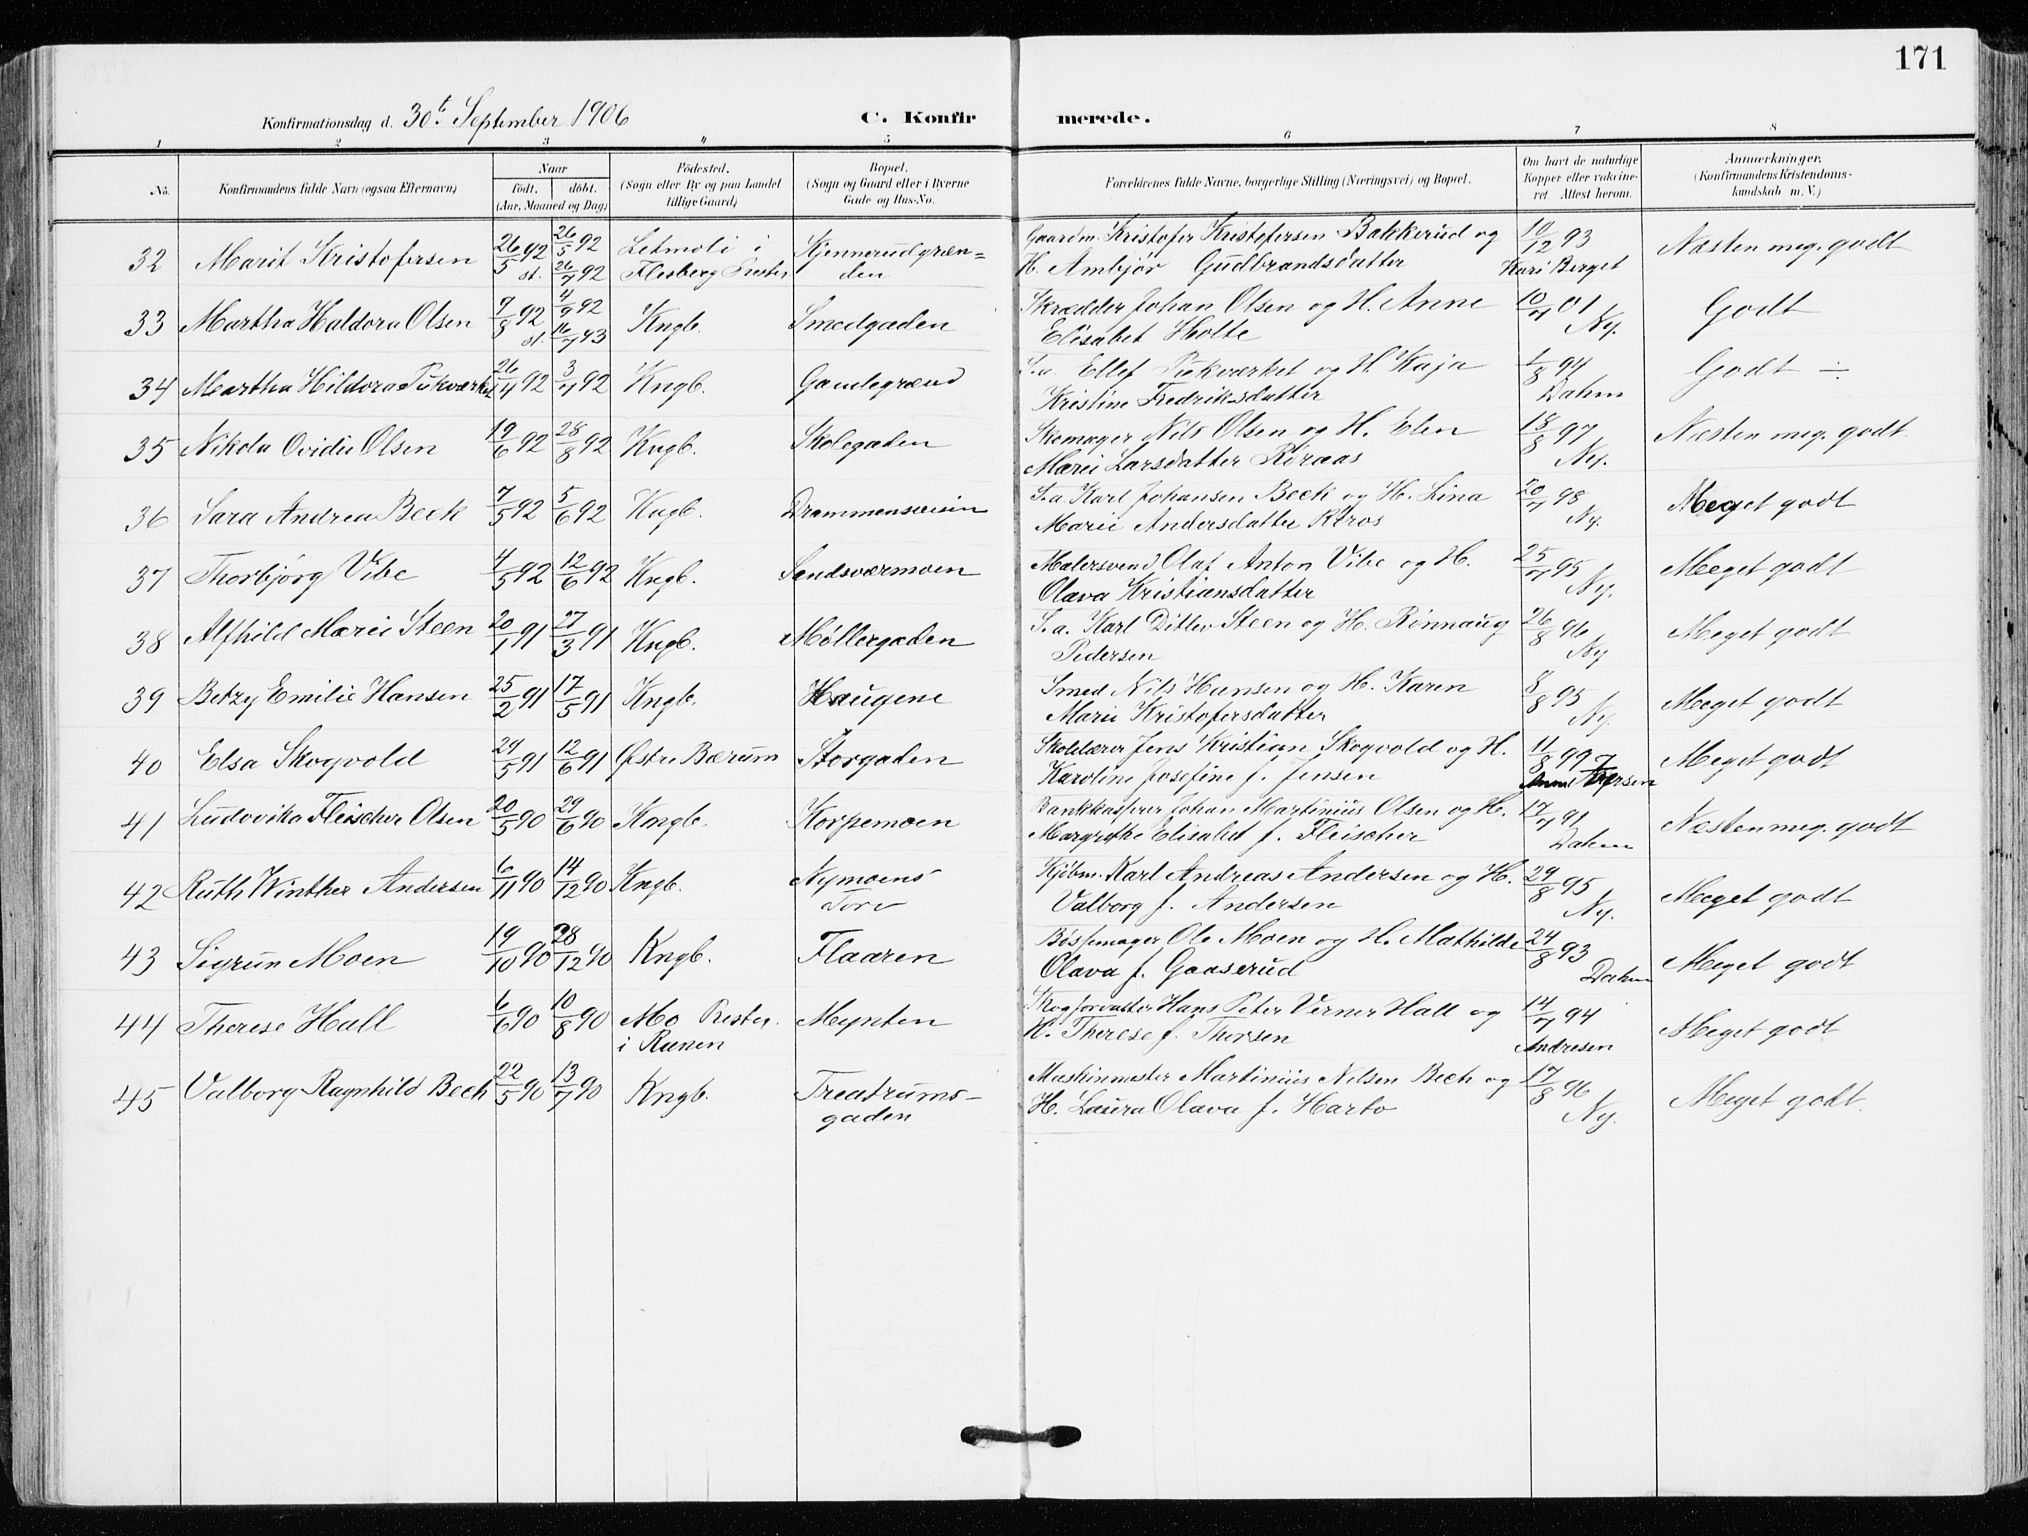 171
Konfirmationsdag d. 30t September 1906 C. Konfir merede.
1 2 3 4 5 6 7 8
No. Konfirmandens fulde Navn (ogsaa Efternavn) Naar født. døbt. (Aar, Maaned og Dag) Fødested. (Sogn eller By og paa Landet tillige Gaard) Bopæl. (Sogn og Gaard eller i Byerne Gade og Hus-No. Forældrenes fulde Navne, borgerlige Stilling (Næringsvei) og Bopæl. Om havt de naturlige Kopper eller vakcineret. Attest herom. Anmærkninger. (Konfirmandens Kristendomskundskab m. V.)
32 Marit Kristofersen 26/5 92 st. 26/5 92 26/7 92 Letmoli i Flesberg Prestej. Kjennerudgrænden Gaardm. Kristofer Kristofersen Bakkerud og H. Ambjør Gudbrandsdatter 10/12 93 Kari Berget Næsten meg. godt
33 Martha Haldora Olsen 7/8 92 st. 4/9 92 16/7 93 Kngb. Smedgaden Skrædder Johan Olsen og H. Anne Elisabet Holte 10/7 01 Ny. Godt
34 Martha Hildora Pukværket 26/4 92 3/7 92 Kngb. Gamlegrænd S.a. Ellef Pukværket og H. Kaja Kristine Fredriksdatter 1/8 94 Dahm Godt ÷
35 Nikola Ovidie Olsen 19/6 92 28/8 92 Kngb. Skolegaden Skomager Nils Olsen og H. Elen Marie Larsdatter Roraas 18/8 97 Ny. Næsten meg. godt.
36 Sara Andrea Beck 7/5 92 5/6 92 Kngb. Drammensveien S.a Karl Johansen Beck og H. Lina Marie Andersdatter Røros 20/7 98 Ny. Meget godt
37 Thorbjørg Vibe 4/5 92 12/6 92 Kngb. Sandsværmoen Malersvend Olaf Anton Vibe og H. Olava Kristiansdatter 25/7 95 Ny. Meget godt
38 Alfhild Marie Steen 20/1 91 27/3 91 Kngb. Møllergaden S.a. Karl Ditlev Steen og H. Rønnaug Pedersen 26/8 96 Ny Meget godt
39 Betzy Emilie Hansen 25/2 91 17/5 91 Kngb. Haugene Smed Nils Hansen og H. Karen Marie Kristofersdatter 8/8 95 Ny. Meget godt
40 Elsa Skogvold 29/5 91 12/6 91 Østre Bærum Storgaden Skolelærer Jens Kristian Skogvold og H. Karoline Josefine f. Jensen 11/8 99 Meget godt
41 Ludovika Fleischer Olsen 20/5 90 29/6 90 Kngb. Korpemoen Bankkasserer Johan Martinius Olsen og H. Margrethe Elisabet f. Fleischer 17/7 91 Dahm Næsten meg. godt
42 Ruth Winther Andersen 6/11 90 14/12 90 Kngb. Nymoens Torv Kjøbm. Karl Andreas Andersen og H. Valborg f. Andersen 29/8 95 Ny. Meget godt
43 Sigrun Moen 19/10 90 28/12 90 Kngb. Flaaren Bøssemager Ole Moen og H. Mathilde Olava f. Gaaserud 24/8 93 Dahm Meget godt
44 Therese Hall 6/6 90 10/8 90 Mo Prestej. i Ranen Mynten Skogforvalter Hans Peter Verner Hall og H. Therese f. Thorsen 14/7 94 Andresen Meget godt
45 Valborg Ragnhild Bech 22/5 90 13/7 90 Kngb. Treatrumsgaden Maskinmester Martinius Nilsen Bech og H. Laura Olava f. Harto 17/8 96 Ny. Meget godt.